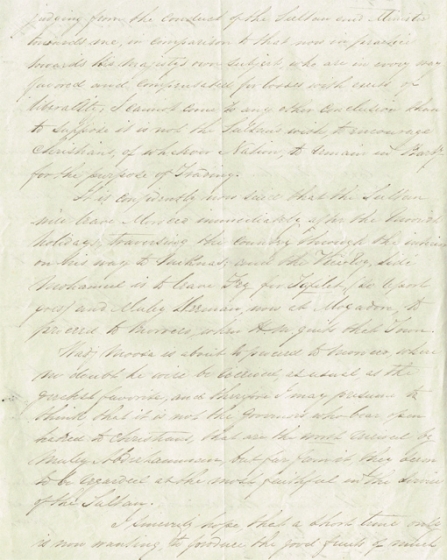 judging from the conduct of the Sultan and Minister
towards me, in comparison to that now in practice
towards His Majesty's own subjects, who are in every way
favored and compensated for losses with such
liberality, I cannot come to any other conclusion than
to suppose it is not the Sultan's wish to encourage
Christians, of whatever Nation, to remain in
for the purpose of Trading.
It is confidently now said that the Sultan
will leave Morocco immediately after the
holidays, traversing the country through the
on his way to and the
Mohammed is to leave Fez for Tafilet, (so report
goes) and Muley now at Mogador, to
proceed to Morocco, when quits that Town.
is about to proceed to Morocco, where
no doubt he will be received as usual as the
greatest favorite, and therefore I may presume to
think that it is not the Governors who bear open
hatred to Christians, that are the worst by
Muley but far from it they seem
to be regarded as the most faithful in the service
of the Sultan.
I sincerely hope that a short time only
is now wanting to produce the good fruits of